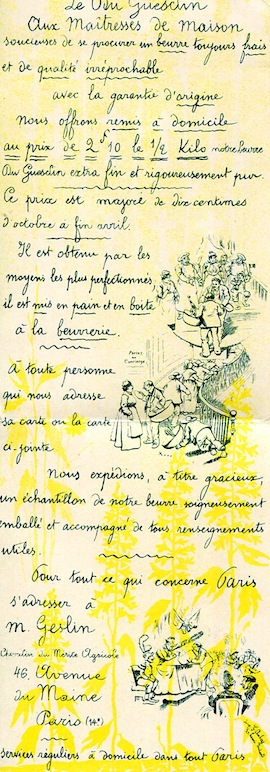 Le Du Guesclin
Aux Maîtresses de Maison
soucieuses de se procurer un beurre toujours frais
et de qualité irréprochable
avec la garantie d'origine
Nous offrons remis à domicile
au prix de 2f10 le ½ Kilo notre beurre
Du Guesclin extra fin et rigoureusement pur.
Ce prix est majoré de dix centimes
d'octobre a fin avril.
Il est obtenu par les
moyens les plus perfectionnés,
il est mis en pain et en boîte
à la beurrerie.
Parlez
au
Concierge
À toute personne
qui nous adresse
sa carte ou la carte
ci-jointe
Nous expédions, à titre gracieux,
un échantillon de notre beurre soigneusement
emballé et accompagné de tous renseignements
utiles.
Pour tout ce qui concerne Paris
s'adresser à
M. Geslin
Chevalier du Mérite Agricole
46, Avenue
du Maine
Paris (14e)
Services réguliers à domicile dans tout Paris